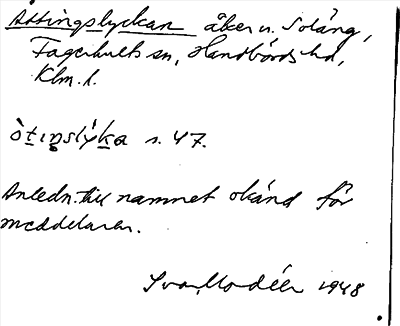 Attingslyckan åker u. Soläng,
Fagerhults sn, Handbörds hd,
Klm. l.
òtıŋslýka s. 47.
Anledn. till namnet okänd för
meddelaren.
Ivar Modéer 1948